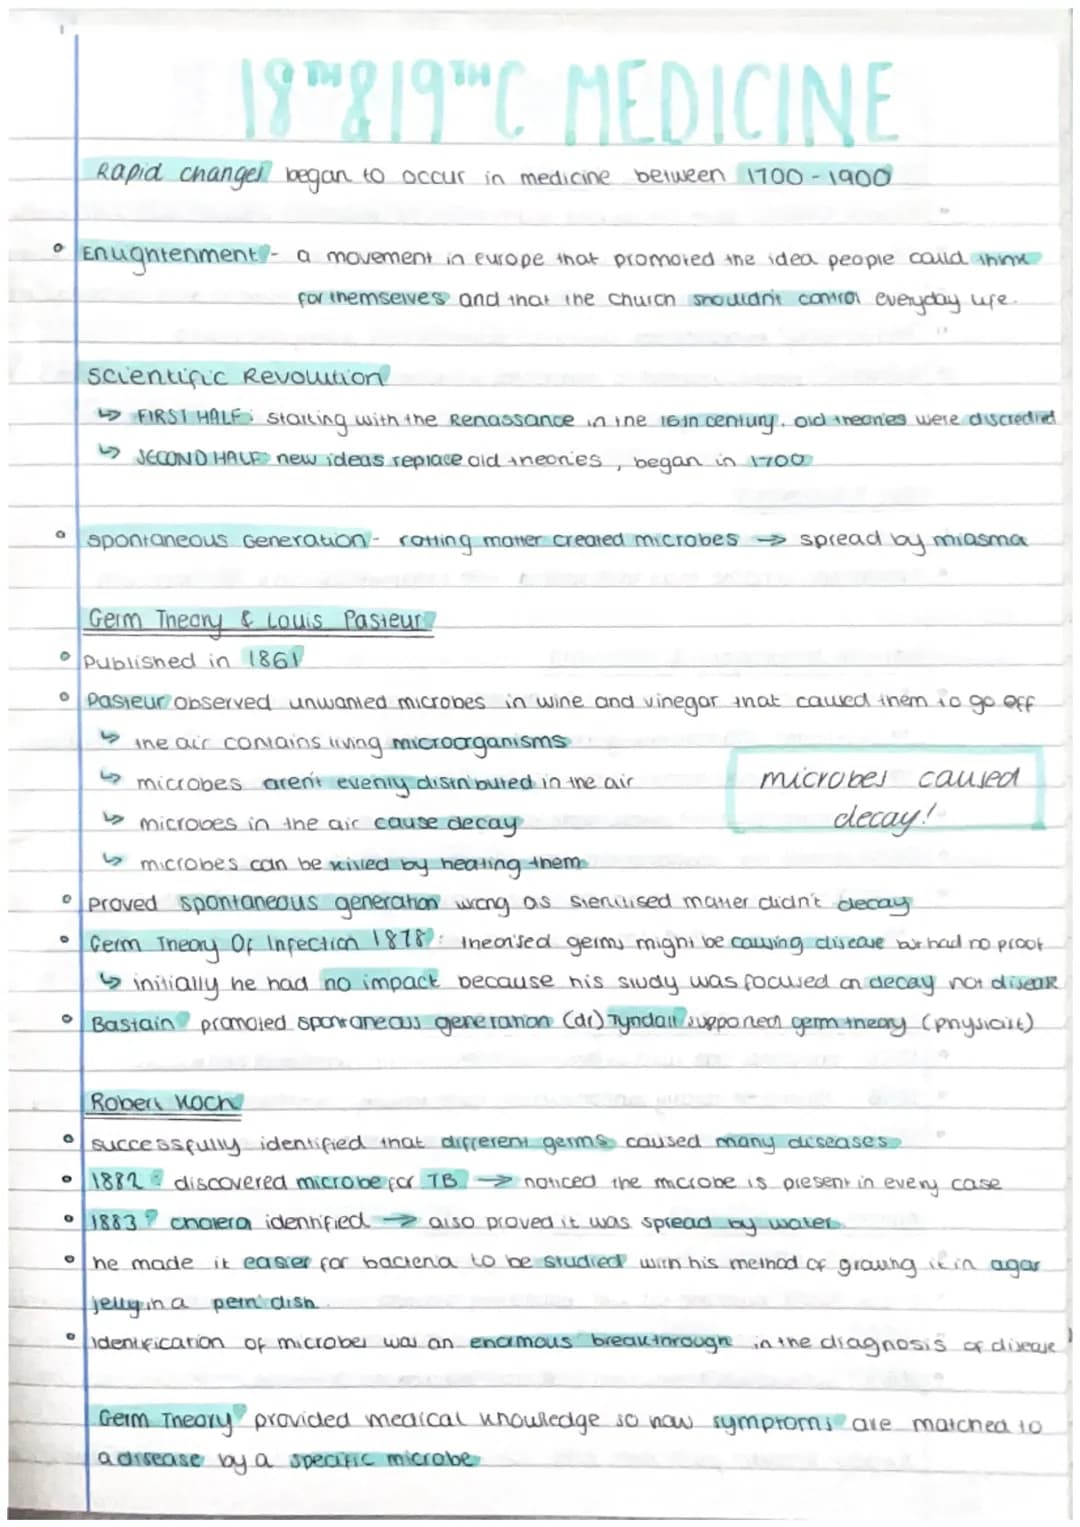 18TH & 19TH C MEDICINE
Rapid changes began to occur in medicine between 1700 - 1900
Enlightenment - a movement in europe that promoted the idea people could think
for themselves and that the church shouldn't control everyday life.
Scientific Revolution
↳ FIRST HALF: starting with the Renassance in the 16th century, old theories were discredited
↳ SECOND HALF new ideas replace old theories, began in 1700
• spontaneous Generation - rotting matter created microbes → spread by miasma
Germ Theory & Louis Pasteur
• Published in 1861
• Pasteur observed unwanted microbes in wine and vinegar that caused them to go off
↳ the air contains living microorganisms
↳ microbes aren't evenly distributed in the air
↳ microbes in the air cause decay
↳ microbes can be killed by heating them
microbes caused
decay!
• proved spontaneous generation wrong as sterilised matter didn't decay
• Germ Theory Of Infection 1878: theorised germs might be causing disease but had no proof
↳ initially he had no impact because his study was focused on decay not disease
• Bastain promoted spontaneous generation (dr) Tyndall supported germ theory (physicist)
Robert Koch
• successfully identified that different germs caused many diseases
• 1882: discovered microbe for TB → noticed the microbe is present in every case
• 1883: cholera identified → also proved it was spread by water
• he made it easier for bacteria to be studied with his method of growing it in agar
jelly in a petri dish.
• identification of microbes was an enormous breakthrough in the diagnosis of disease
Germ Theory provided medical knowledge so now symptoms are matched to
a disease by a specific microbe